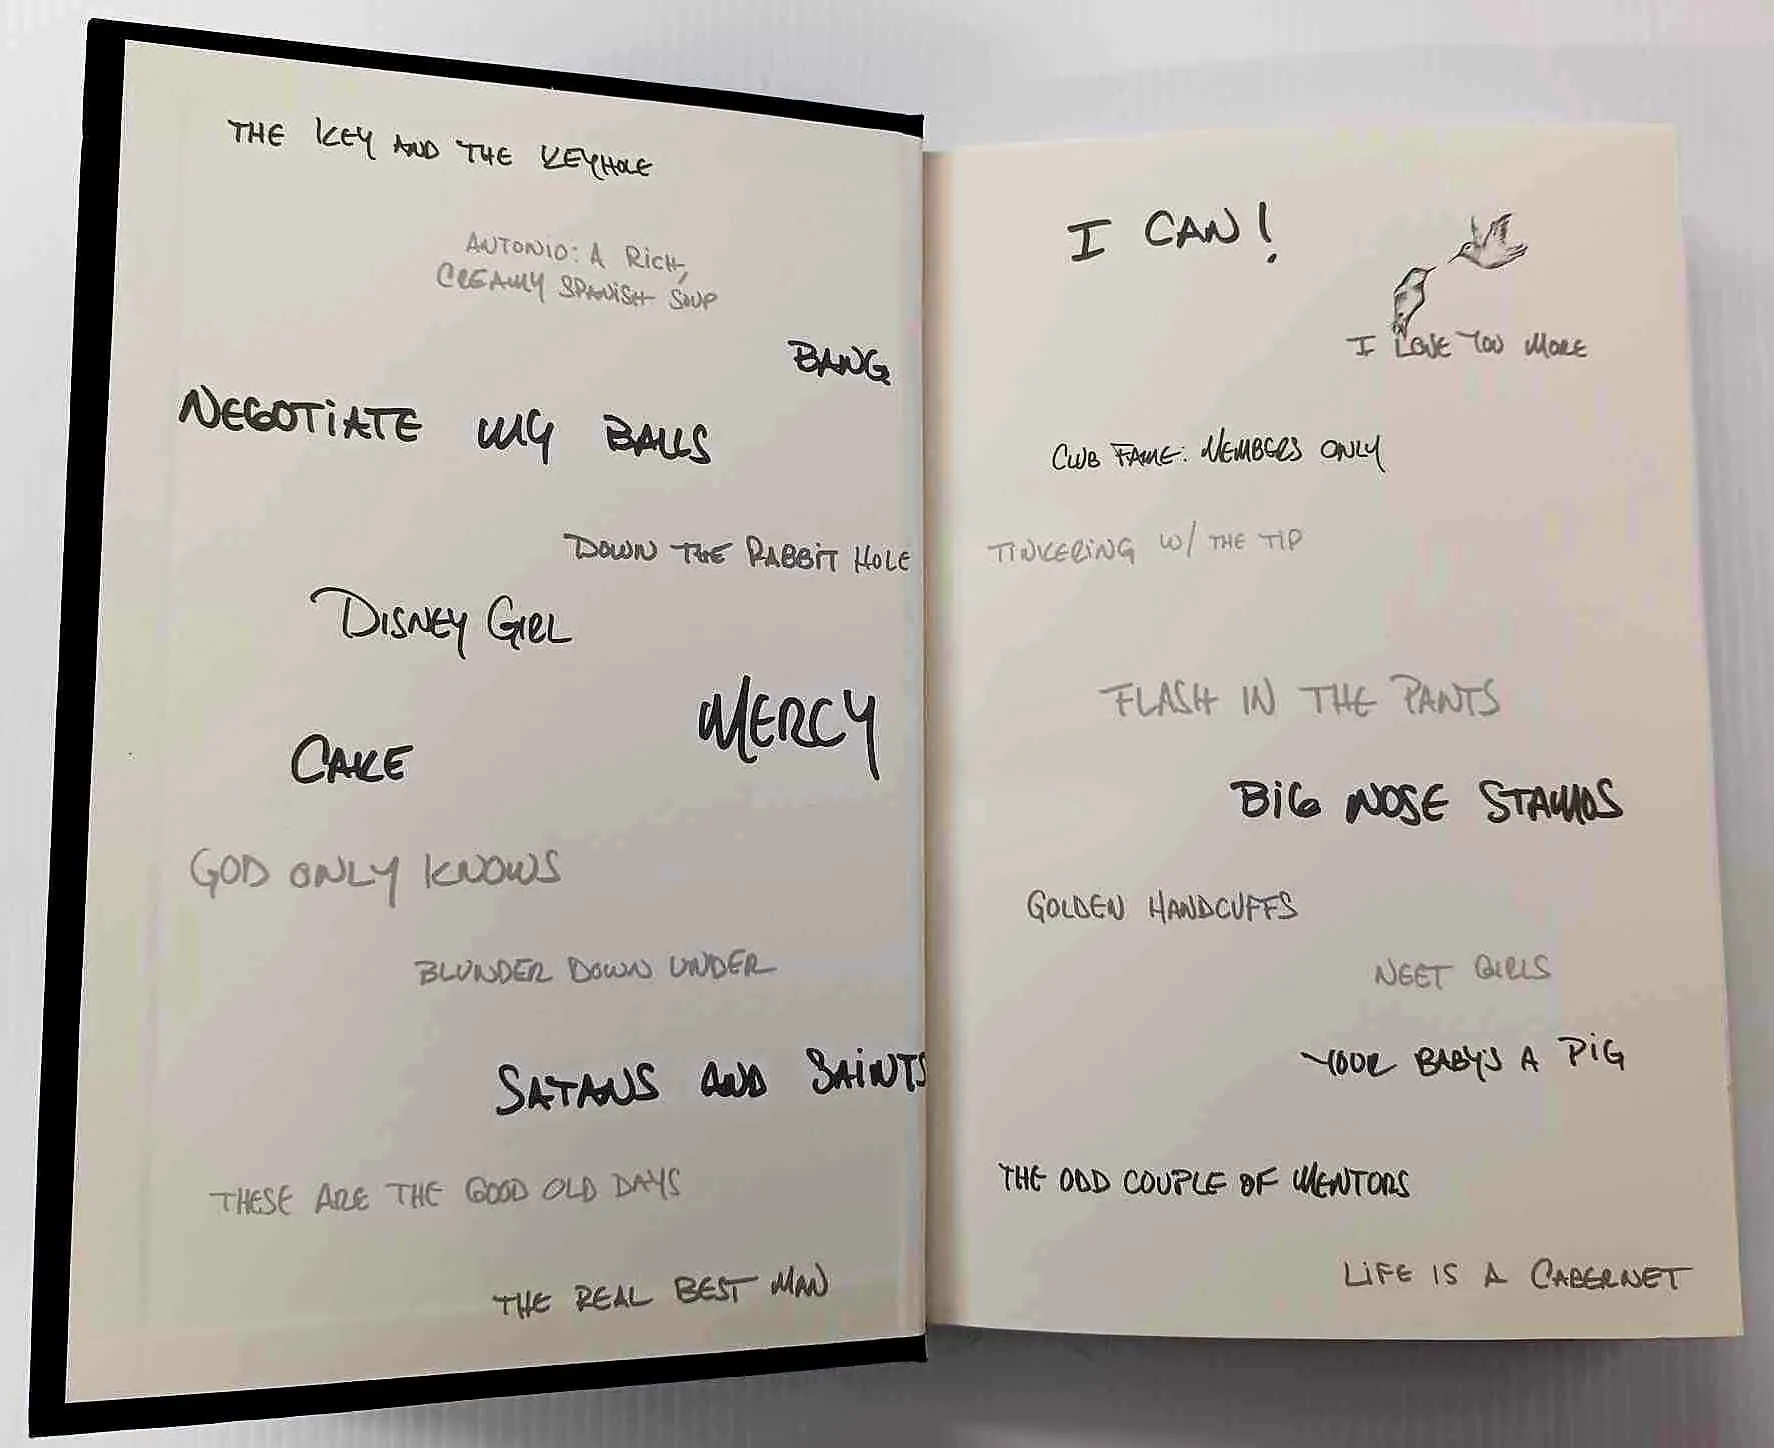 THE KEY AND THE KEYHOLE
ANTONIO: A RICH,
CREAMY SPANISH SOUP
BANG
NEGOTIATE MY BALLS
DOWN THE RABBIT HOLE
DISNEY GIRL
MERCY
CAKE
GOD ONLY KNOWS
BLUNDER DOWN UNDER
SATANS AND SAINTS
THESE ARE THE GOOD OLD DAYS
THE REAL BEST MAN
I CAN!
I LOVE YOU MORE
CLUB FAME: MEMBERS ONLY
TINKERING W/ THE TIP
FLASH IN THE PANTS
BIG NOSE STAMOS
GOLDEN HANDCUFFS
NEET GIRLS
YOUR BABY'S A PIG
THE ODD COUPLE OF MENTORS
LIFE IS A CABERNET